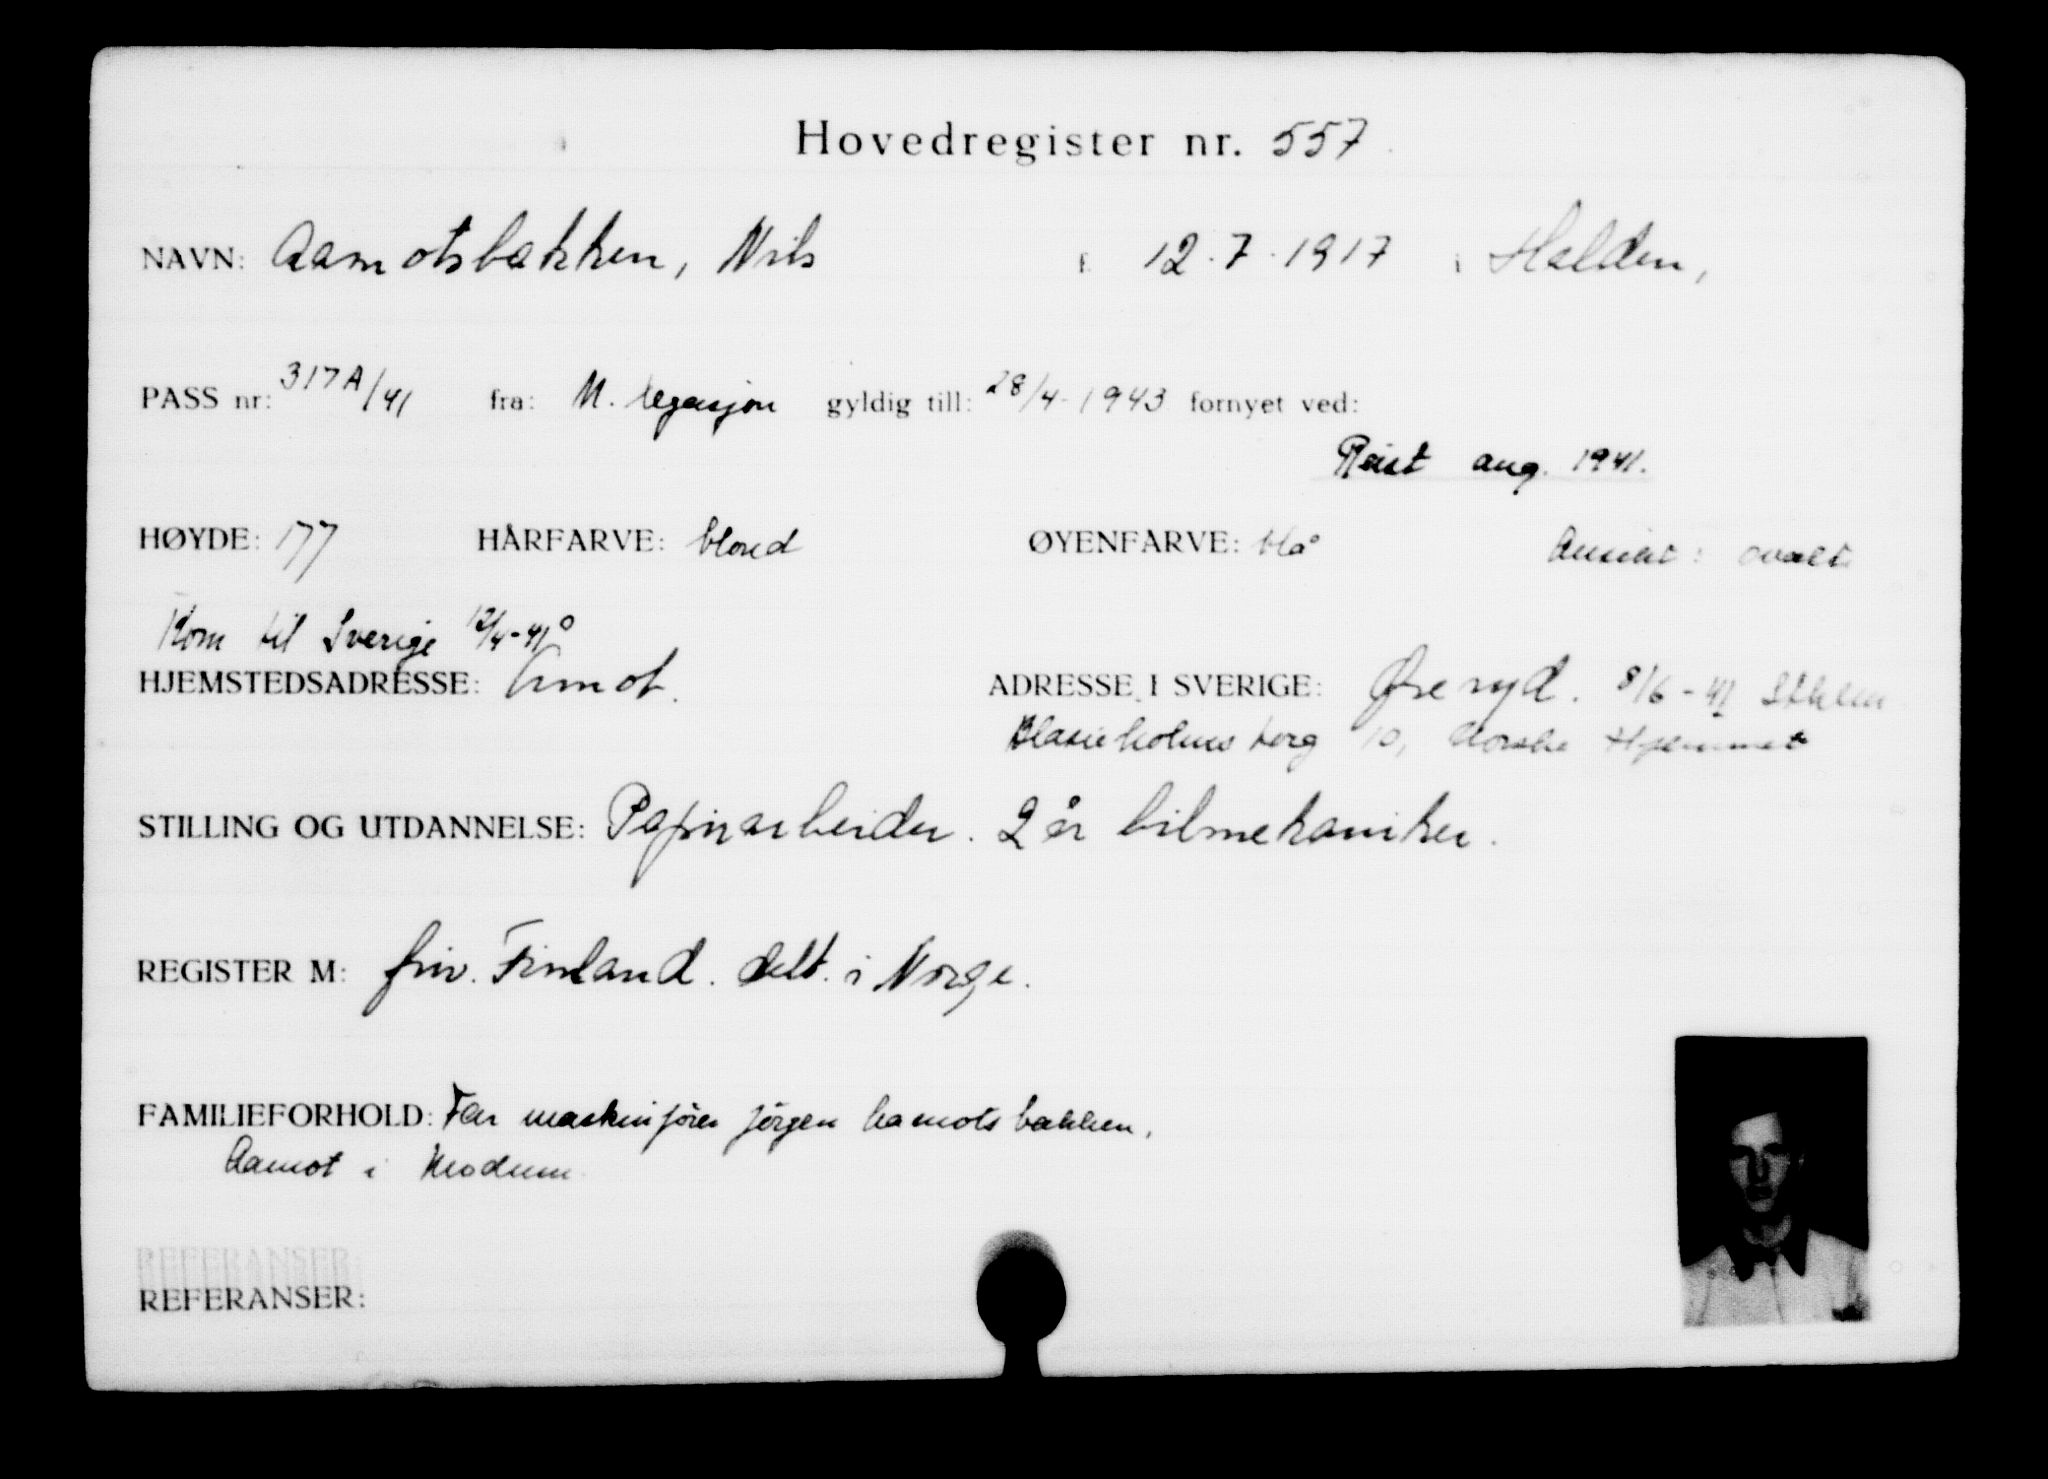 Hovedregister nr. 557
NAVN: Aamotsbakken, Nils f. 12.7.1917 i Halden,
PASS nr: 317A/41 fra: N. legasjon gyldig till: 28/4-1943 fornyet ved:
Reist aug. 1941.
HØYDE: 177 HÅRFARVE: blond ØYENFARVE: blå Ansikt: ovalt
Kom til Sverige 12/4-41
HJEMSTEDSADRESSE: Åmot. ADRESSE I SVERIGE: Øreryd. 8/6-41 Sthlm
Blasieholms torg 10, Norske Hjemmet
STILLING OG UTDANNELSE: Papirarbeider. 2 år bilmekaniker.
REGISTER M: friv. Finland. delt. i Norge.
FAMILIEFORHOLD: Far maskinfører Jørgen Aamotsbakken,
Aamot i Modum
REFERANSER:
REFERANSER: